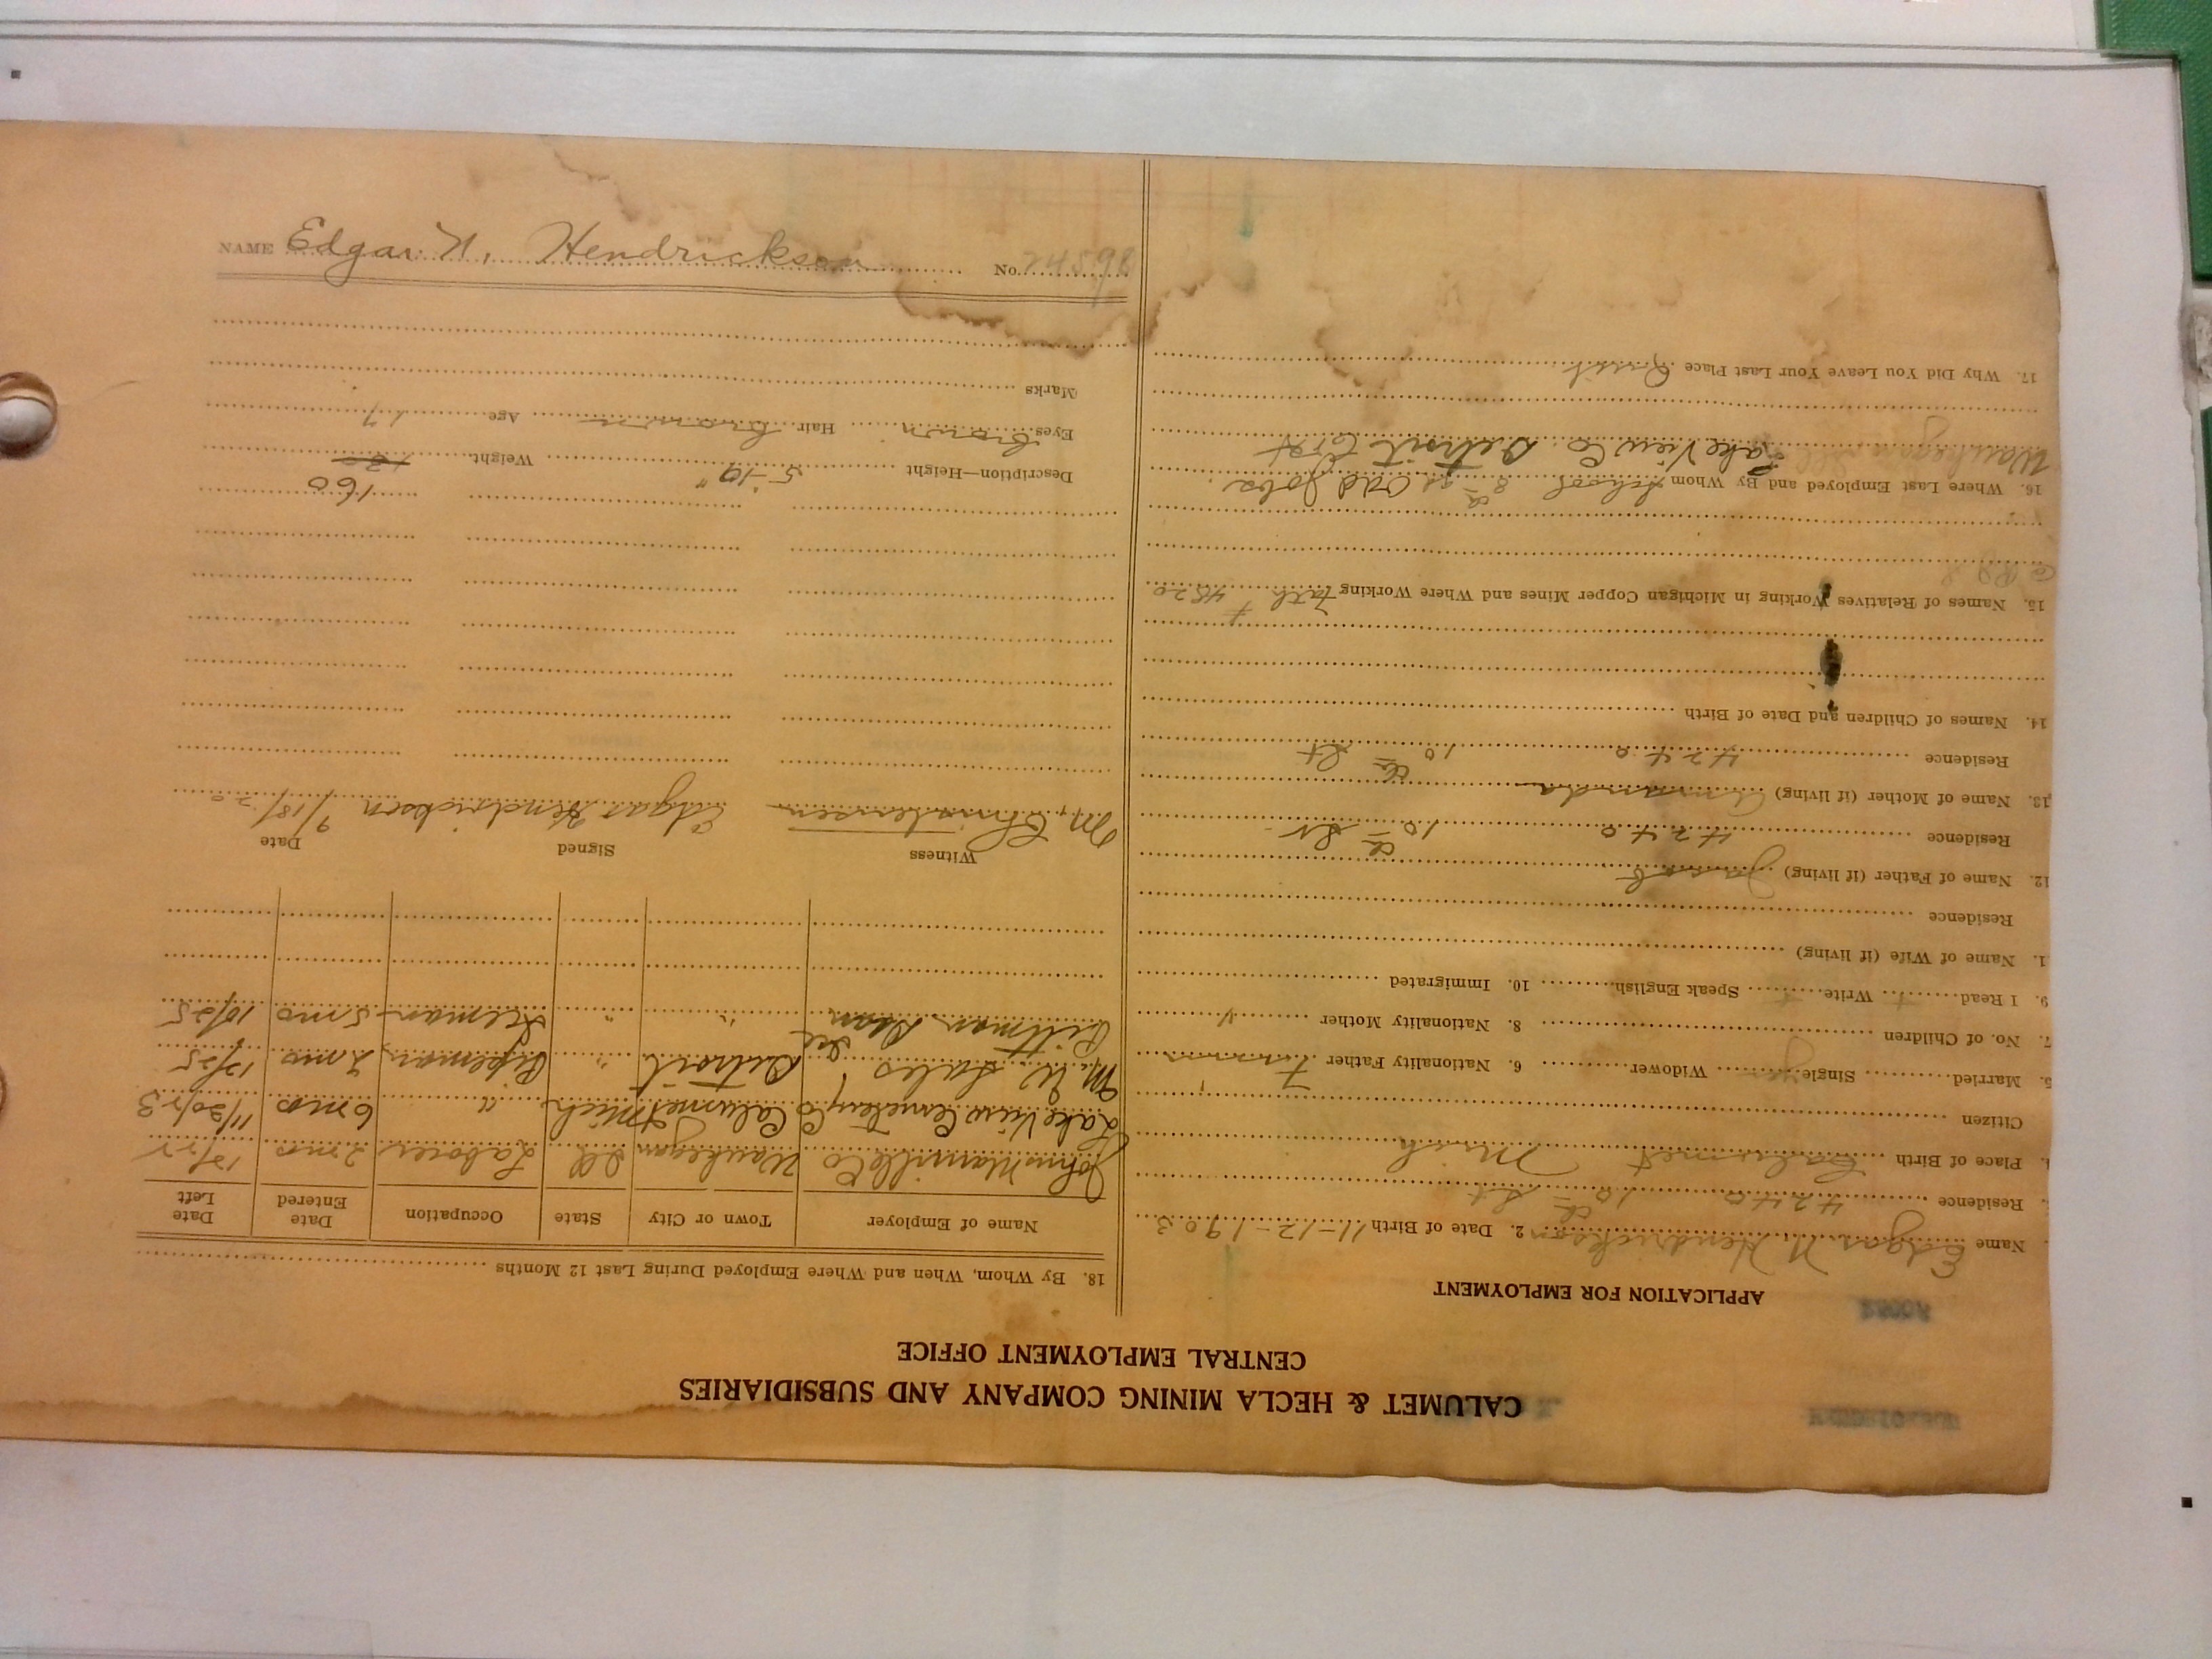 CALUMET & HECLA MINING COMPANY AND SUBSIDIARIES
CENTRAL EMPLOYMENT OFFICE
APPLICATION FOR EMPLOYMENT
Name Edgar N Hendrickson 2. Date of Birth 11-12-1903
Residence 4240 10th St
Place of Birth Calumet Mich
Citizen
5. Married Single Widower 6. Nationality Father
7. No. of Children 8. Nationality Mother "
9. I Read Write Speak English 10. Immigrated
1. Name of Wife (if living)
Residence
12. Name of Father (if living) Jacob
Residence 4240 10th St.
13. Name of Mother (if living) Amanda
Residence 4240 10th St
14. Names of Children and Date of Birth
15. Names of Relatives Working in Michigan Copper Mines and Where Working Fath 4820
16. Where Last Employed and By Whom School 8th gr odd Jobs.
Waukegan Ill Lake View Co. Detroit
17. Why Did You Leave Your Last Place Quit.
18. By Whom, When and Where Employed During Last 12 Months
Name of Employer Town or City State Occupation Date Entered Date Left
Johns Manville Co Waukegan Ill Laborer 2 mo
Lake View Cemetery Co Calumet Mich " 6 mo 11/20/23
M. W. Sales, Detroit " Pipeman 2 mo 12/25
Pittman Dean " " Iceman 5 mo 10/25
Witness Signed Date
M. Christensen Edgar Hendrickson 9/18/20
160
Description—Height 5-10" Weight 130
Eyes brown Hair brown Age 17
Marks
NAME Edgar N. Hendrickson No. 24598